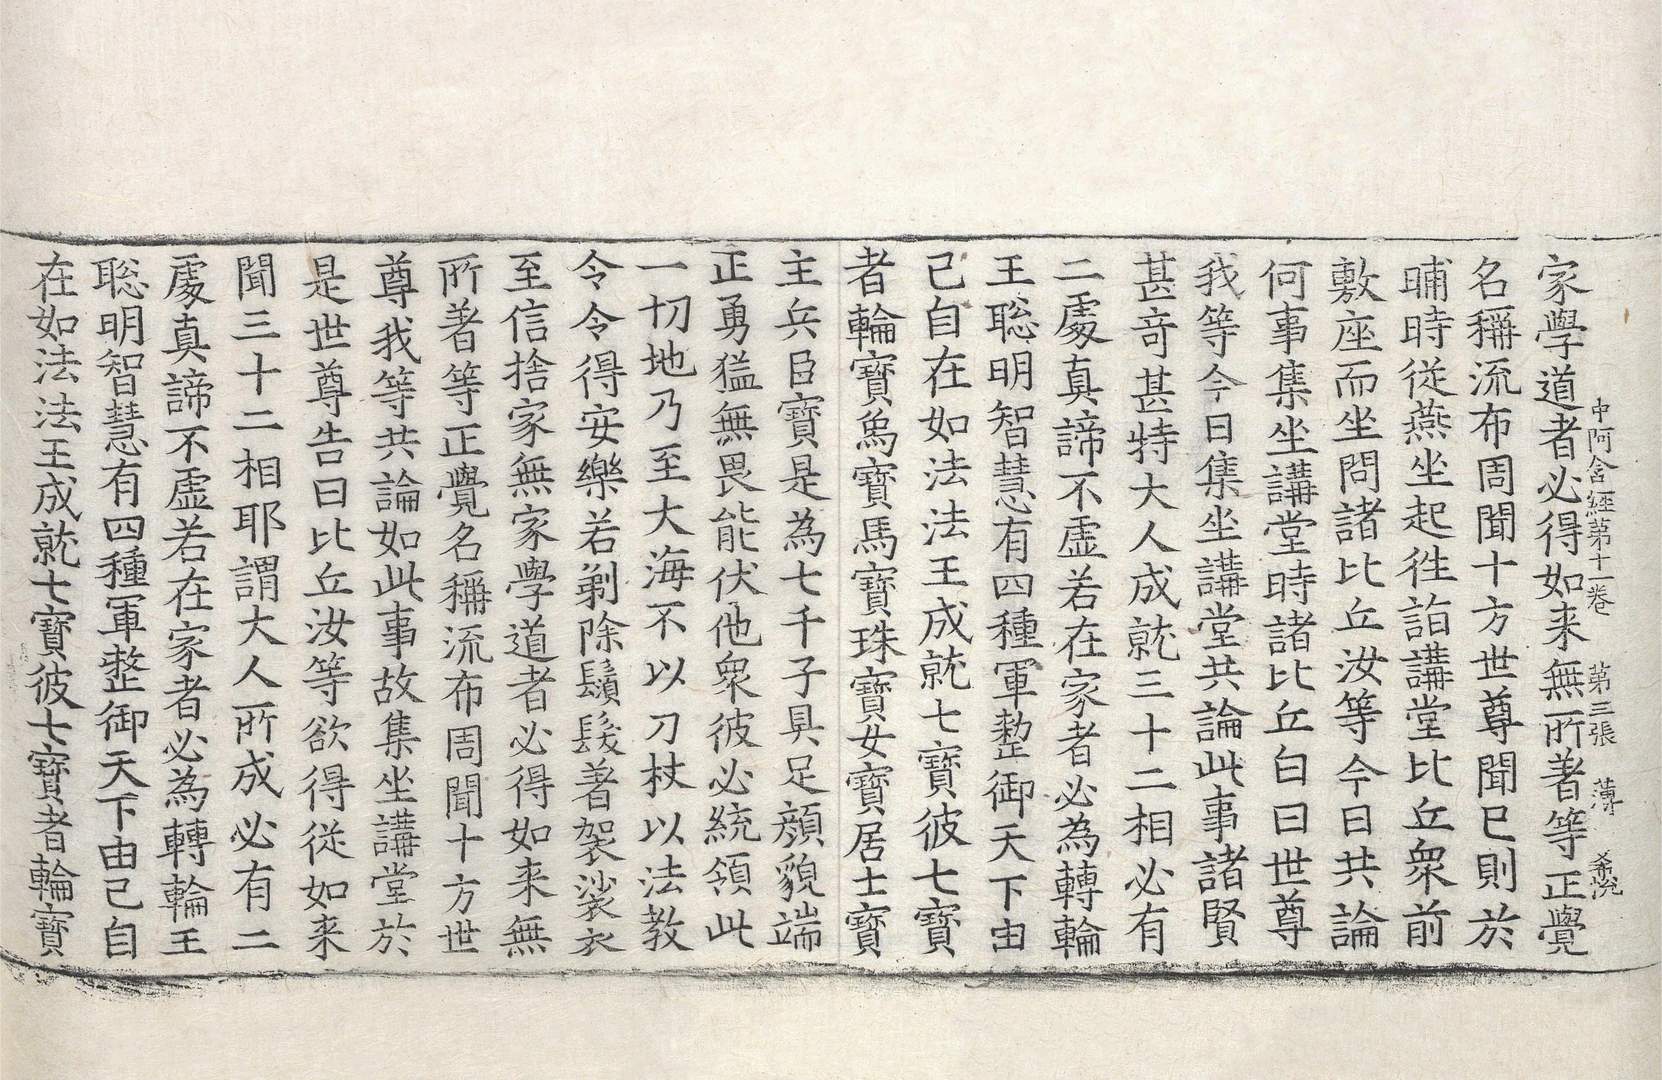 中阿含經第十一卷 第三張 薄 希悅
家學道者必得如来無所著等正覺
名稱流布周聞十方世尊聞已則於
晡時從燕坐起徃詣講堂比丘衆前
敷座而坐問諸比丘汝等今日共論
何事集坐講堂時諸比丘白曰世尊
我等今日集坐講堂共論此事諸賢
甚奇甚特大人成就三十二相必有
二處真諦不虛若在家者必為轉輪
王聡明智慧有四種軍整御天下由
己自在如法法王成就七寶彼七寶
者輪寶烏寶馬寶珠寶女寶居士寶
主兵臣寶是為七千子具足顔貌端
正勇猛無畏能伏他衆彼必統領此
一切地乃至大海不以刀杖以法教
令令得安樂若剃除鬚髮著袈裟衣
至信捨家無家學道者必得如来無
所著等正覺名稱流布周聞十方世
尊我等共論如此事故集坐講堂於
是世尊告曰比丘汝等欲得從如来
聞三十二相耶謂大人所成必有二
處真諦不虛若在家者必為轉輪王
聡明智慧有四種軍整御天下由己自
在如法法王成就七寶彼七寶者輪寶